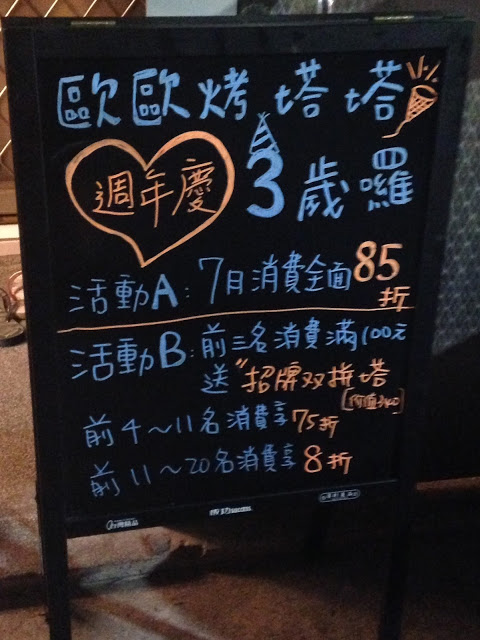 歐歐烤塔塔
週年慶 3歲囉
活動A: 7月消費全面85折
活動B: 前三名消費滿100元
送"招牌双拼塔
前4～11名消費享75折
前11～20名消費享8折